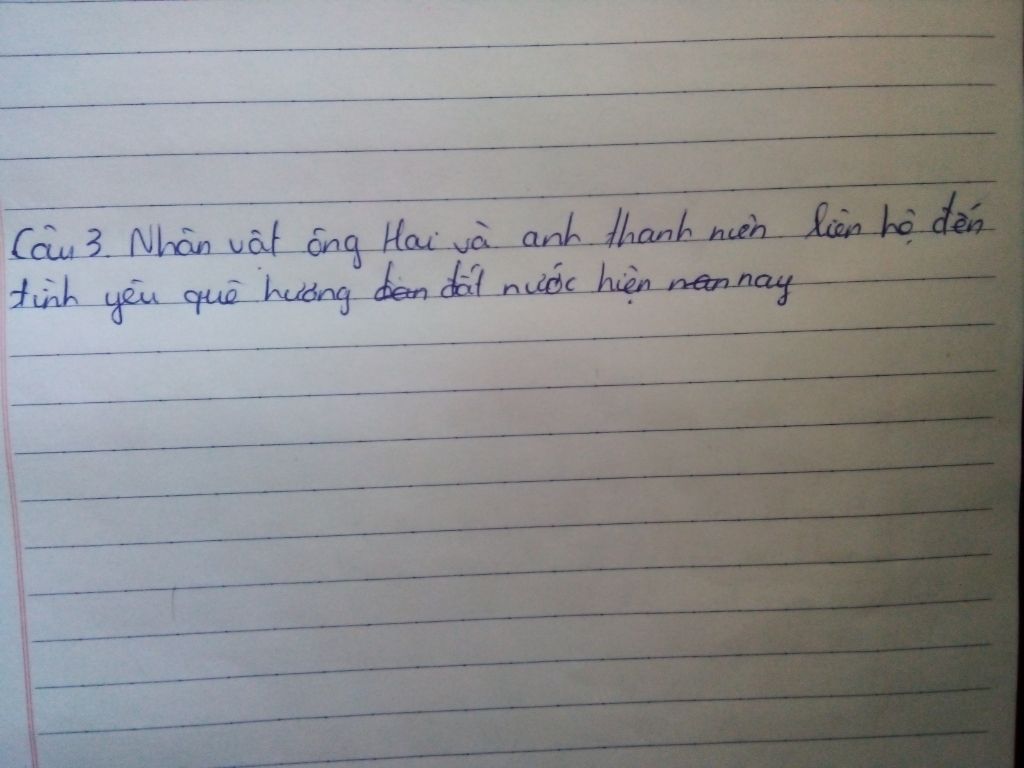 Câu 3. Nhân vật ông Hai và anh thanh niên liên hệ đến
tình yêu quê hương đất nước hiện nay